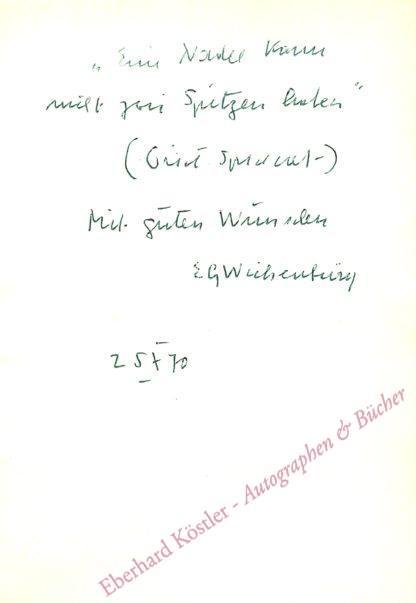 „Eine Nadel kann
nicht zwei Spitzen haben"
Mit guten Wünschen
EGWickenburg
25 70
Eberhard Köstler - Autographen & Bücher